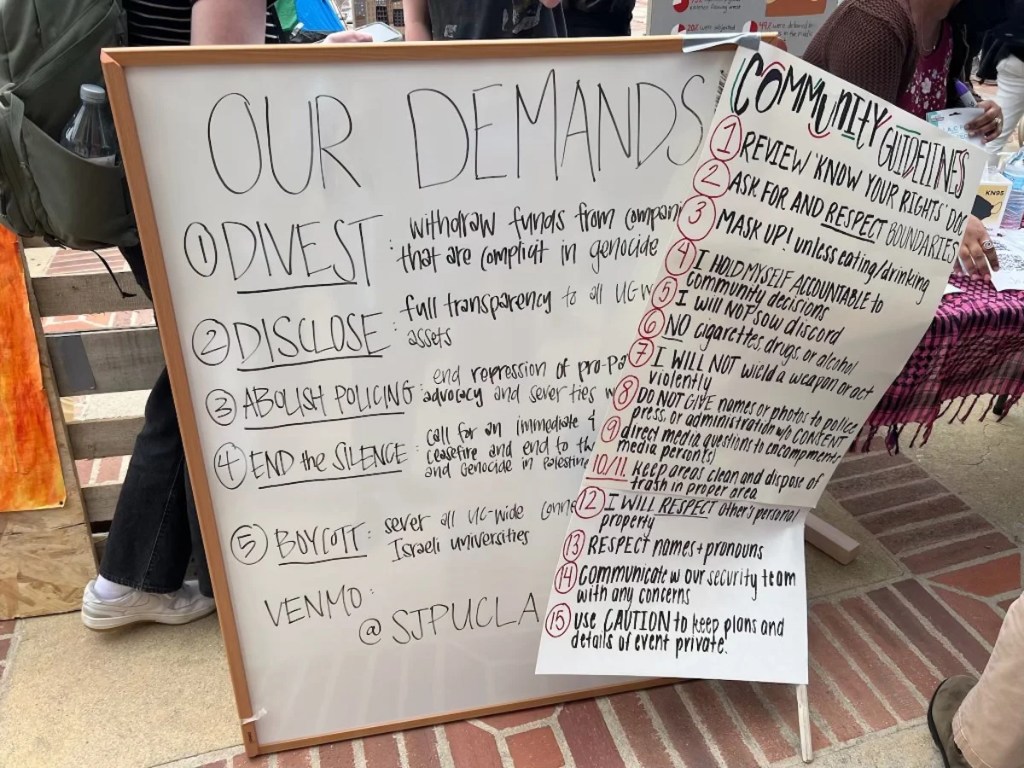 OUR DEMANDS
① DIVEST : withdraw funds from
that are complicit in genocide
② DISCLOSE : full transparency to all UC-W
assets
③ ABOLISH POLICING : end repression of
advocacy and sever ties
④ END the SILENCE : call for an immediate &
ceasefire and end to
and Genocide in Palestine
⑤ BOYCOTT : sever all UC-wide
Israeli universities
VENMO:
@SJPUCLA
COMMUNITY GUIDELINES
1 REVIEW 'KNOW YOUR RIGHTS' DOC
2 ASK FOR AND RESPECT BOUNDARIES
3 MASK UP! unless eating/drinking
4 I HOLD MYSELF ACCOUNTABLE to
community decisions
5 I will NOT sow discord
6 NO cigarettes, drugs, or alcohol
7 I WILL NOT wield a weapon or act
violently
8 DO NOT GIVE names or photos to police
press, or administration w/o CONSENT
9 direct media questions to encampments
media person(s)
10/11 keep areas clean and dispose of
trash in proper area
12 I WILL RESPECT other's personal
property
13 RESPECT names + pronouns
14 communicate w our security team
with any concerns
15 use CAUTION to keep plans and
details of event private.
KN95